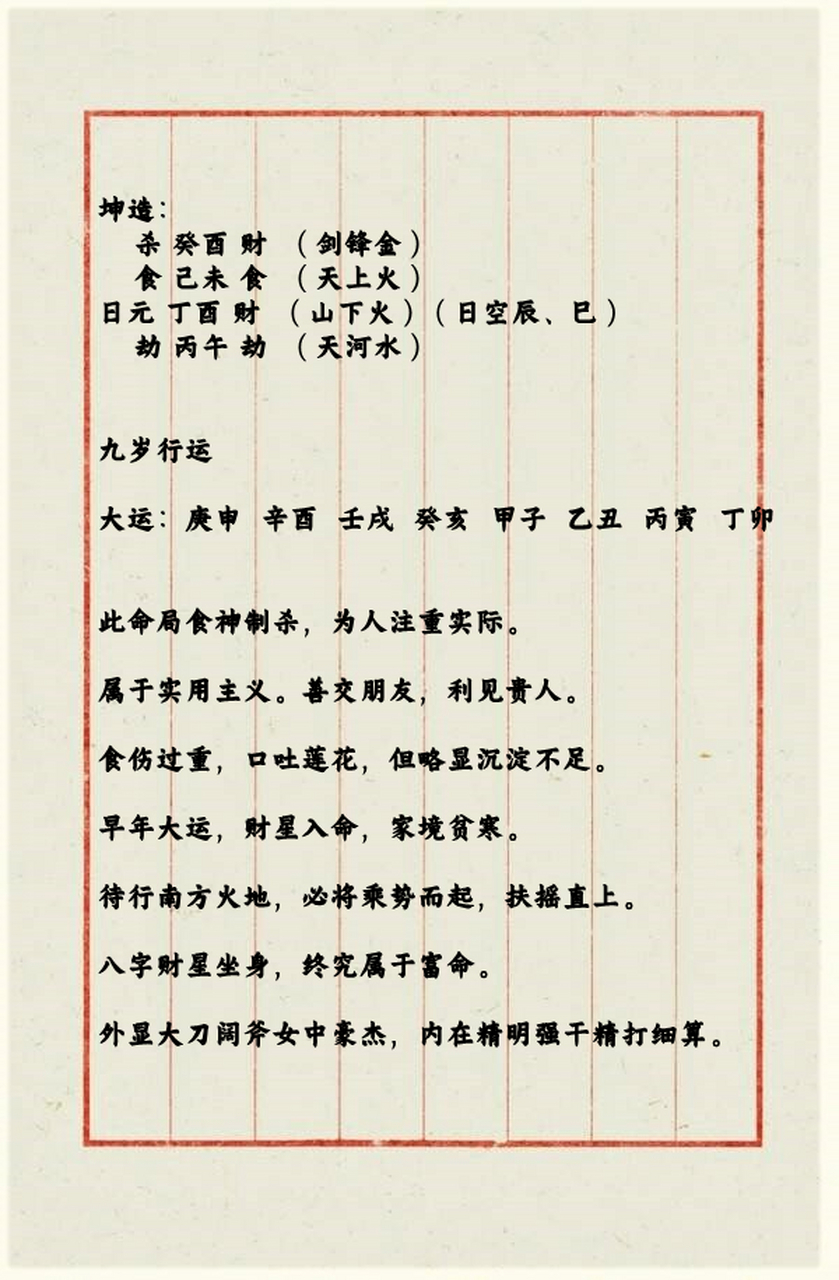 坤造：
杀 癸酉 财 （剑锋金）
食 己未 食 （天上火）
日元 丁酉 财 （山下火）（日空辰、巳）
劫 丙午 劫 （天河水）
九岁行运
大运：庚申 辛酉 壬戌 癸亥 甲子 乙丑 丙寅 丁卯
此命局食神制杀，为人注重实际。
属于实用主义。善交朋友，利见贵人。
食伤过重，口吐莲花，但略显沉淀不足。
早年大运，财星入命，家境贫寒。
待行南方火地，必将乘势而起，扶摇直上。
八字财星坐身，终究属于富命。
外显大刀阔斧女中豪杰，内在精明强干精打细算。